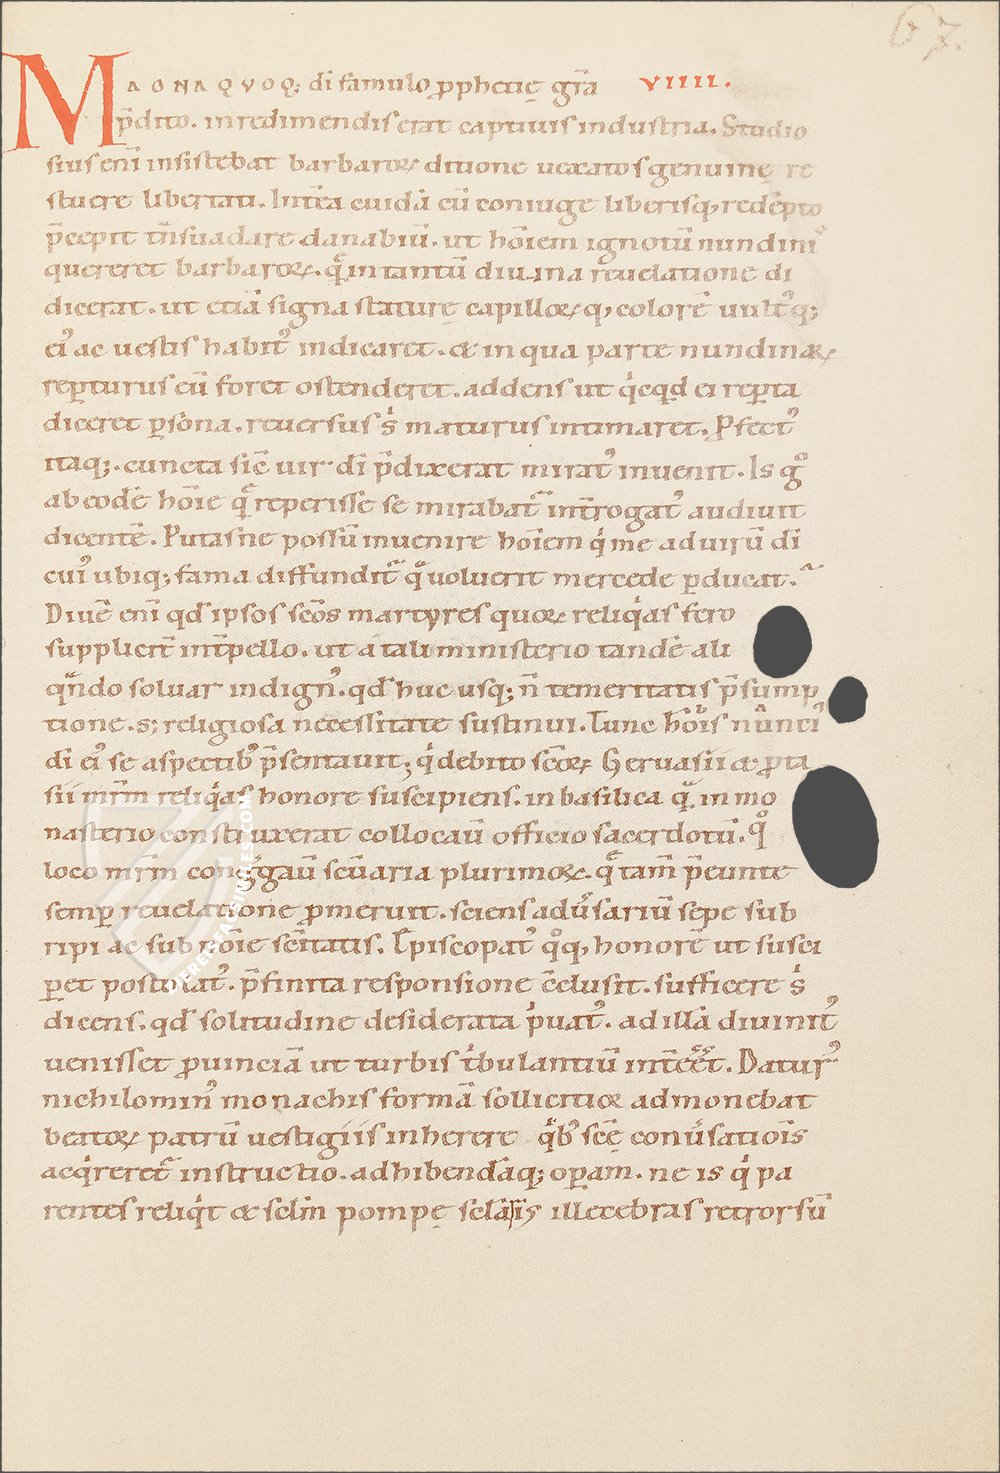 67.
MAGNA QVOQ; di famulo ꝓphetię gr̄a VIIII.
p̄dito. in redimendis erat captiuis industria. Studio
sius eni̅ insistebat barbaroꝝ ditione uexatos genuinę re
stuere libertati. Int̄ea cuidā cū coniuge liberisq, redēpto
p̄cepit tn̄suadare danabiū. ut hōiem ignotū nundiniˀ
quereret barbaroꝝ. quē in tantū diuina reuelatione di
dicerat. ut etiā signa staturę capilloꝝ q, colorē uultˀq;
eiˀ ac uestis habitˀ indicaret. & in qua parte nundinaꝝ
reꝑturus eū foret ostenderet. addens ut qͥcqd ei reꝑta
diceret ꝑsona. reuersus sͥ maturus intimaret. Ꝓfectˀ
itaq;. cuncta sic̄ uir di p̄dixerat miratˀ inuenit. Is gͦ
ab eodē hōie quē reperisse se mirabatᷓ int̄rogatˀ audiuit
dicentē. Putasne possū inuenire hōiem qͥ me ad uirū di
cuiˀ ubiq; fama diffunditᷓ qͣ uoluerit mercede ꝑducat.
Diuē eni̅ qd ipsos scōs martyres quoꝝ reliqͥas fero
supplicit̄ int̄pello. ut a tali ministerio tandē ali
qͣndo soluar indignˀ. qd huc usq; n̄ temeritatis p̄sump
tione. s; religiosa necessitate sustinui. Tunc hōis nūciˀ
di eiˀ se aspectibˀ p̄sentauit; qͥ debito scōꝝ Geruasii & ꝓta
sii mr̄m reliqͥas honore suscipiens. in basilica qͣ in mo
nasterio construxerat collocauī officio sacerdotū. qͦ
loco mr̄m cong̓gauī scūaria plurimoꝝ. qͣ tam̄ p̄eunte
semꝑ reuelatione ꝓmeruit. sciens adu̓sariū sepe sub
ripi ac sub nōie scītatis. Episcopatˀ qͦq, honorē ut susci
ꝑet postulatˀ. p̄finita responsione c̄clusit. sufficere sͥ
dicens. qd solitudine desiderata pͥuatˀ. ad illā diuinitˀ
uenisset ꝓuinciā ut turbis tͥbulantiū int̄eēt. Daturˀ
nichilominˀ monachis formā sollicitiˀ admonebat
beatoꝝ patrū uestigiis inherere qͥbˀ scē conu̓sationis
acqͥreretᷓ instructio. adhibendāq; oꝑam. ne is qͥ pa
rentes reliqͥt & sclm̄ pompę sclāsiis illecebras retrorsū
VEREFACSIMILES.COM